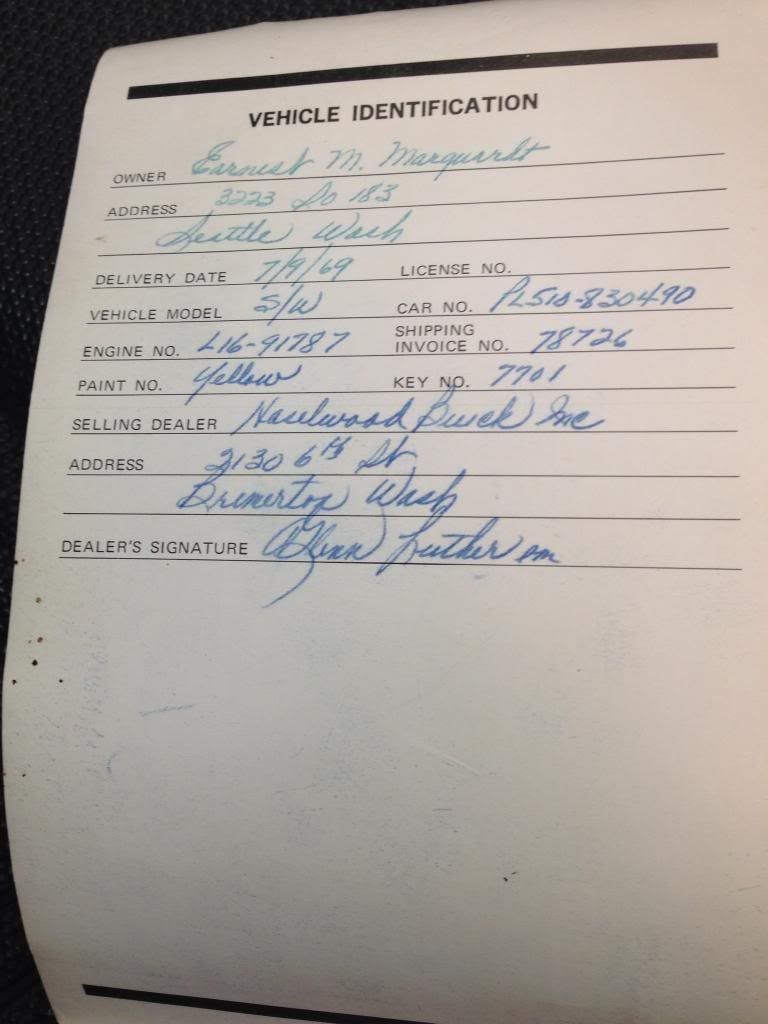 VEHICLE IDENTIFICATION
OWNER Earnest M. Marquardt
ADDRESS 3223 So 183
Seattle Wash
DELIVERY DATE 7/9/69 LICENSE NO.
VEHICLE MODEL S/W CAR NO. PL510-830490
ENGINE NO. L16-91787 SHIPPING INVOICE NO. 78726
PAINT NO. Yellow KEY NO. 7701
SELLING DEALER Haselwood Buick Inc
ADDRESS 2130 6th St
Bremerton Wash
DEALER'S SIGNATURE Glenn Luther